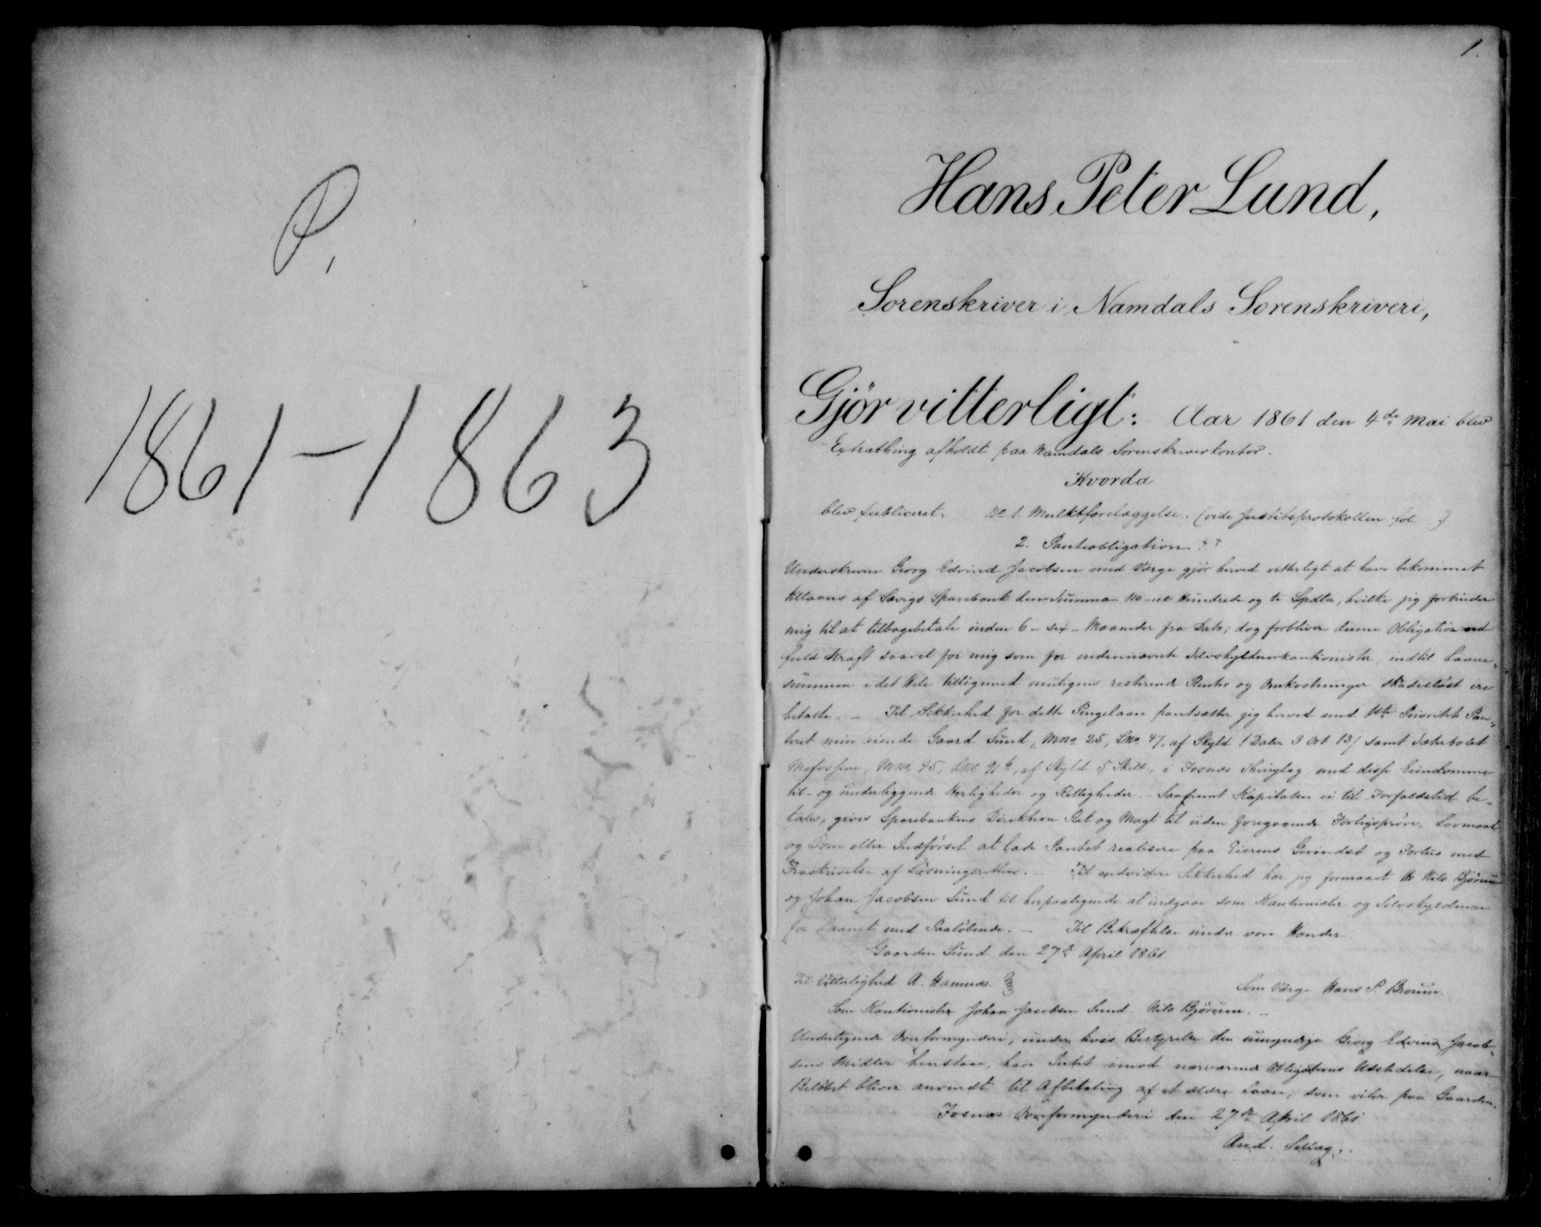 P.
1861-1863
1.
Hans Peter Lund,
Sorenskriver i Namdals Sorenskriveri,
Gjör vitterligt: Aar 1861 den 4de Mai blev
Extrathing afholdt paa Namdals Sorenskriverkontor.
Hvorda
blev publiceret. No 1. Mulktforelæggelse. (vide Justitsprotokollen fol )
2. Panteobligation
Underskrevne Georg Edvind Jacobsen med Værge gjör herved vitterligt at have bekommet
tillaans af Sparebank den Summa 110 et Hundrede og ti Spdlr, hvilke jeg forbinder
mig til at tilbagebetale inden 6 - sex - Maaneder fra Dato; dog forbliver denne Obligation ved
fuld Kraft saavel for mig som for nedennævnte Selvskyldnerkautionister, indtil Laane-
summen i det Hele tilligemed muligens resterende Renter og Omkostninger skadeslöst ere
betalte. - Til Sikkerhed for dette Pengelaan pantsætter jeg herved med 1ste Prioritets Pan-
teret min eiende Gaard Sund, Mno 25, Lno 47, af Skyld 1 Daler 3 Ort 13 / samt
Mno 45, af Skyld Skill, i Fosnæs Thinglag med disse Eiendomme
til- og underliggende Herligheder og Rettigheder. Saafremt Kapitalen ei til Forfaldstid be-
tales, gives Sparebankens Direktion Ret og Magt til uden foregaaende Forligspröve, Lovmaal
og Dom eller Indförsel at lade Pantet realisere paa Eierens Gevindst og Forliis med
Fraskrivelse af Lösningsretten. - Til endvidere Sikkerhed har jeg formaaet Hr Nils Bjørum
og Johan Jacobsen Sund til herpaategnede at indgaae som Kautionister og Selvskyldnere
for Laanet med Paalöbende. - Til Bekræftelse under vore Hænder.
Gaarden Sund den 27de April 1861
Til Vitterlighed A. Hamnes. Som Værge Hans P. Broum.
Som Kautionister Johan Jacobsen Sund. Nils Bjørum.
Undertegnede Overformynderi, under hvis Bestyrelse den umyndige Georg Edvind Jacob-
sens Midler henstaae, have Intet imod nærværende Obligations Udstedelse, naar
Belöbet bliver anvendt til Afbetaling af et ældre Laan, som hviler paa Gaarden.
Fosnæs Overformynderi den 27de April 1861
And.